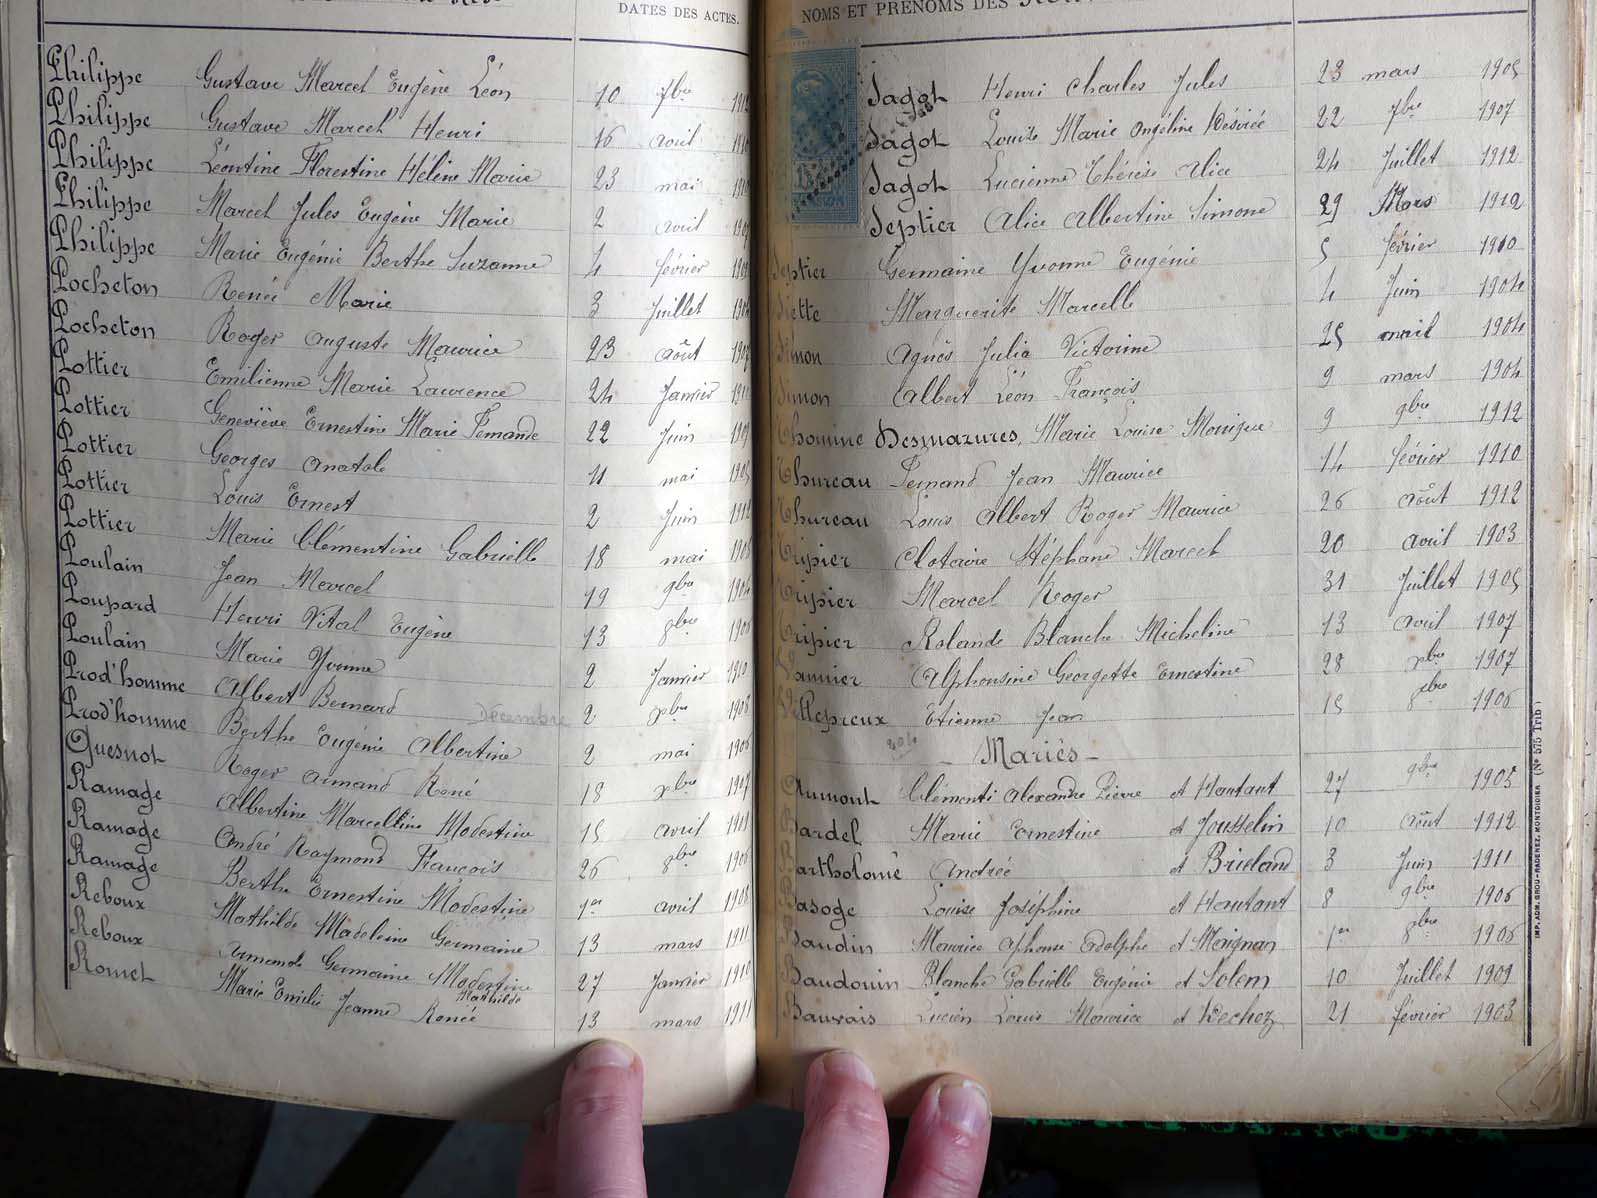 DATES DES ACTES.
Philippe Gustave Marcel Eugène Léon 10 7bre 1912
Philippe Gustave Marcel Henri 16 avril 1910
Philippe Léontine Florestine Hélène Marie 23 mai
Philippe Marcel Jules Eugène Marie 2 avril
Philippe Marie Eugénie Berthe Suzanne 4 février
Pocheton Renée Marie 3 Juillet 1904
Pocheton Roger Auguste Maurice 23 août 1907
Pottier Emilienne Marie Laurence 24 Janvier
Pottier Geneviève Ernestine Marie Fernande 22 Juin
Pottier Georges Anatole 11 mai
Pottier Louis Ernest 2 Juin 1912
Pottier Marie Clémentine Gabrielle 18 mai
Poulain Jean Marcel 19 9bre 1904
Poupard Henri Vital Eugène 13 8bre
Poulain Marie Yvonne 2 Janvier 1910
Prod'homme Albert Bernard Décembre 2 xbre 1908
Prod'homme Berthe Eugénie Albertine 2 mai 1906
Quesnot Roger Armand René 18 xbre 1907
Ramage Albertine Marcelline Modestine 15 avril 1911
Ramage André Raymond François 26 8bre 1906
Ramage Berthe Ernestine Modestine 1er avril 1908
Reboux Mathilde Madeleine Germaine 13 mars 1911
Reboux Armande Germaine Modestine 27 Janvier 1910
Mathilde
Romet Marie Emilie Jeanne Renée 13 mars 1911
NOMS ET PRÉNOMS DES
Sagot Henri Charles Jules 23 mars 1905
Sagot Louise Marie Angéline Désirée 22 7bre 1907
Sagot Lucienne Thérèse Alice 24 Juillet 1912
Septier Alice Albertine Simone 29 Mars 1912
Septier Germaine Yvonne Eugénie 5 février 1910
Siette Marguerite Marcelle 4 Juin 1904
Simon Agnès Julia Victorine 25 1904
Simon Albert Léon François 9 mars 1904
Thomine Desmazures, Marie Louise Monique 9 9bre 1912
Thureau Fernand Jean Maurice 14 février 1910
Thureau Louis Albert Roger Maurice 26 août 1912
Tripier Clotaire Stéphane Marcel 20 avril 1903
Tripier Marcel Roger 31 Juillet 1905
Tripier Rolande Blanche Micheline 13 avril 1907
Vannier Alphonsine Georgette Ernestine 28 xbre 1907
Villepreux Etienne Jean 15 1906
- Mariés -
Aumont Clémenti Alexandre Pierre et Hautant 27 9bre 1905
Bardel Marie Ernestine et Jousselin 10 août 1912
Bartholomé Andrée et Brieland 3 Juin 1911
Basoge Louise Joséphine et Hautant 8 9bre 1906
Baudin Maurice Alphonse Adolphe et Moignan 1er 8bre 1906
Baudouin Blanche Gabrielle Eugénie et Solem 10 Juillet 1909
Bauvais Lucien Louis Maurice et Dechoz 21 février 1903
IMP. ADM. GROU-RADENEZ, MONTDIDIER (No 575 Trib.)